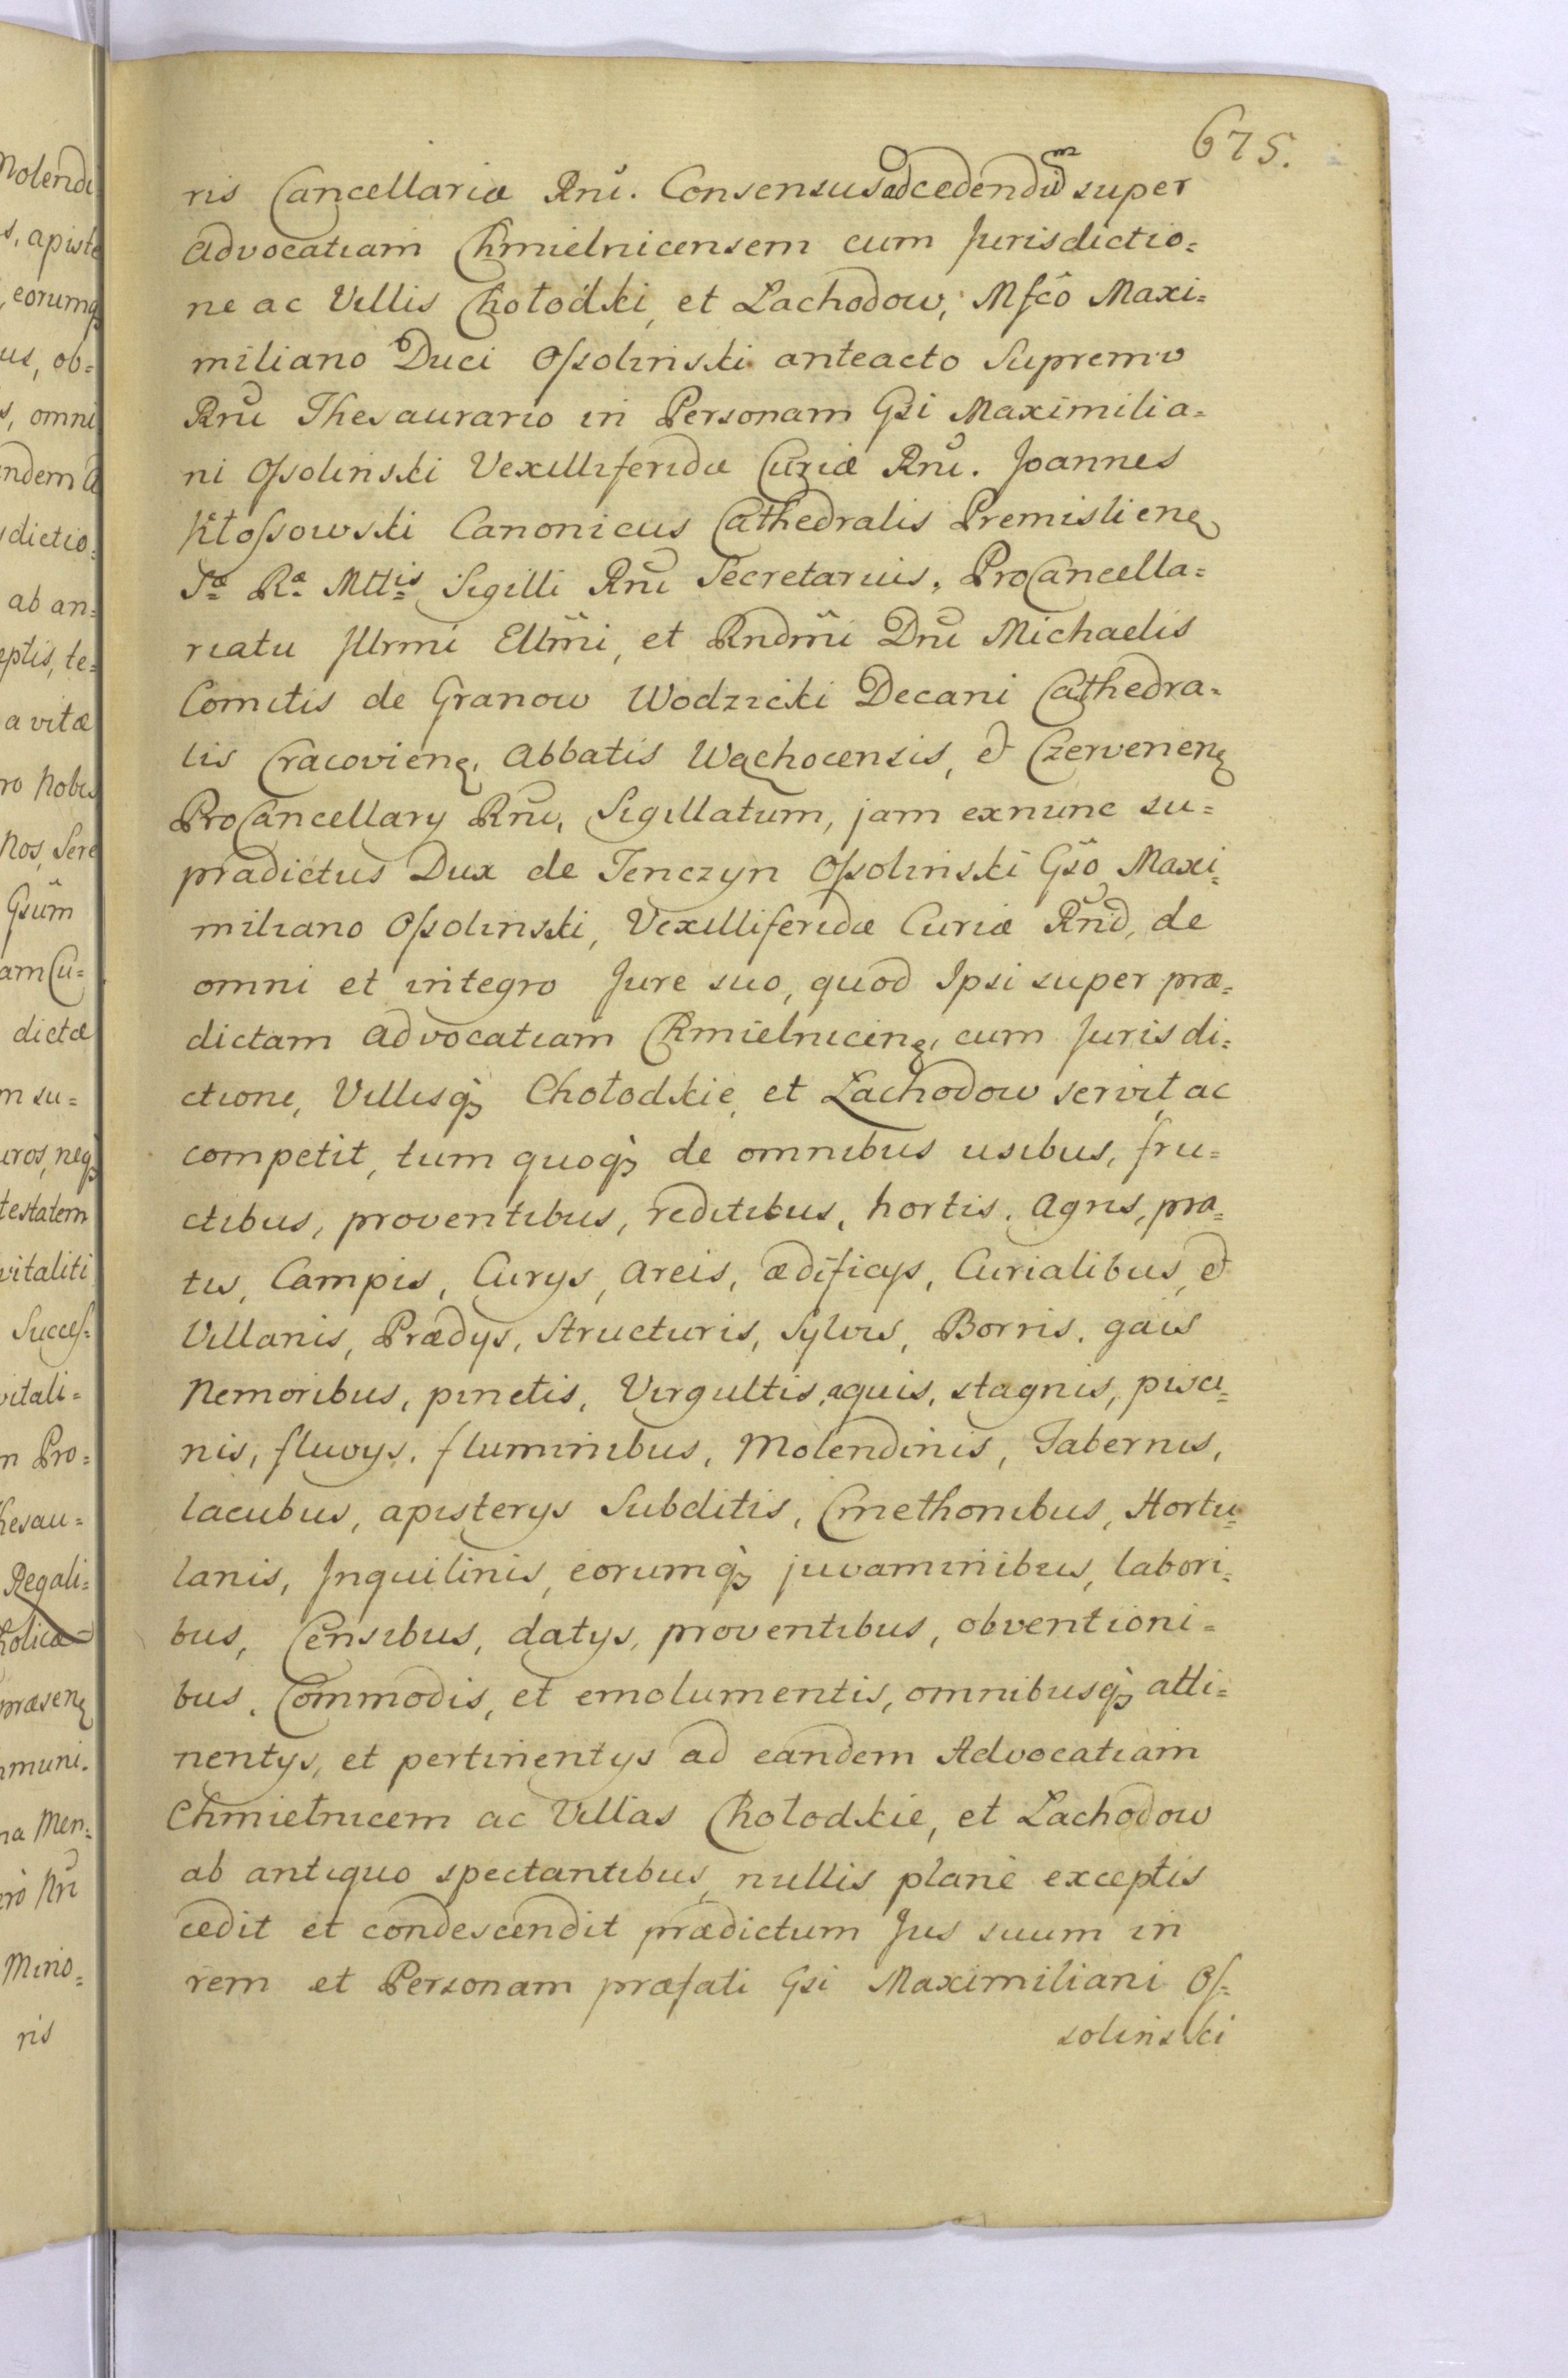 675.
ris Cancellariæ Rnũ. Consensus ad cedendũm super
Advocatiam Chmielnicensem cum Jurisdictio=
ne ac Villis Chołodki, et Lachodow, Mfcô Maxi=
miliano Duci Ossolinski anteacto Supremo
Rnũ Thesaurario in Personam Gsi Maximilia=
ni Ossolinski Vexilliferidæ Curiæ Rnũ. Joannes
Kłossowski Canonicus Cathedralis Premislienꝫ
Sæ Ræ Mttis Sigilli Rnũ Secretarius, ProCancella=
riatu Jllrmi Ellm̃i, et Rndm̃i Dnĩ Michaelis
Comitis de Granow Wodzicki Decani Cathedra=
lis Cracovienꝫ, Abbatis Wachocensis, et Czervenenꝫ
ProCancellary Rnũ, Sigillatum, jam exnunc su=
pradictus Dux de Tenczyn Ossolinski Gsõ Maxi=
miliano Ossolinski, Vexilliferidæ Curiæ Rnĩd, de
omni et integro Jure suo, quod Ipsi super præ=
dictam Advocatiam Chmielnicenꝫ, cum Jurisdi=
ctione, Villisqꝫ Chołodkie, et Lachodow servit, ac
competit, tum quoqꝫ de omnibus usibus, fru=
ctibus, proventibus, reditibus, hortis, Agris, pra=
tis, Campis, Curys, Areis, ædificys, Curialibus, et
Villanis, Prædys, Structuris, Sylvis, Borris, gais
Nemoribus, pinetis, Virgultis, aquis, stagnis, pisci=
nis, fluvys, fluminibus, Molendinis, Tabernis,
lacubus, apisterys Subditis, Cmethonibus, Hortu=
lanis, Jnquilinis, eorumqꝫ juvaminibus, labori=
bus, Censibus, datys, proventibus, obventioni=
bus, Commodis, et emolumentis, omnibusqꝫ atti=
nentys, et pertinentys ad eandem Advocatiam
Chmielnicem ac Villas Chołodkie, et Lachodow
ab antiquo spectantibus, nullis planè exceptis
cedit et condescendit prædictum Jus suum in
rem et Personam præfati Gsi Maximiliani Os=
solinski